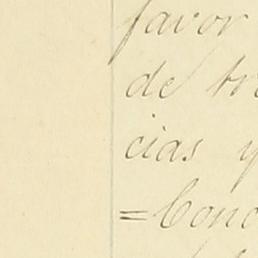 favor
de tr
cias y
=Conc